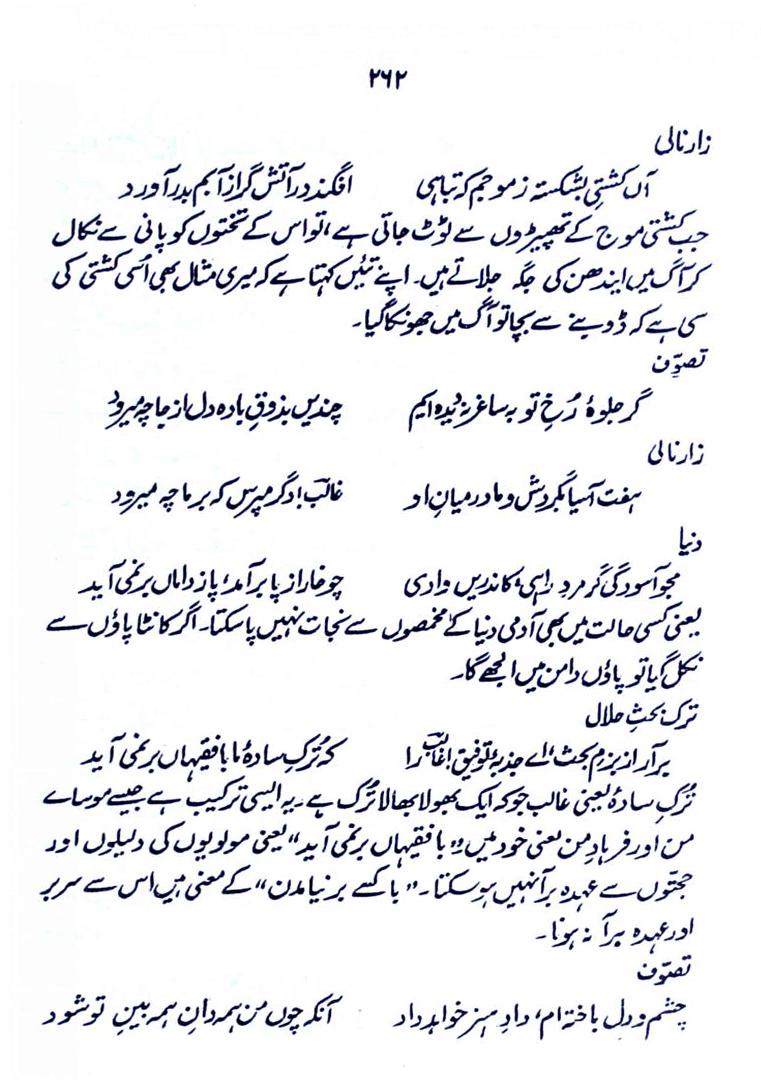 ۲۶۲
زار نالی
آں کشتیِ بشکستہ ز موجم کہ تباہی افگند در آتش گر از آبم بدر آورد
جب کشتی موج کے تھپیڑوں سے ٹوٹ جاتی ہے، تو اس کے تختوں کو پانی سے نکال
کر آگ میں ایندھن کی جگہ جلاتے ہیں۔ اپنے تئیں کہتا ہے کہ میری مثال بھی اُسی کشتی کی
سی ہے کہ ڈوبنے سے بچا تو آگ میں جھونکا گیا۔
تصوّف
گر جلوۂ رُخِ تو بہ ساغر ندیدہ ایم چندیں بذوقِ بادہ دل از جا چہ میرود
زار نالی
ہفت آسیا بگردش و ما درمیانِ او غالبؔ! دگر مپرس کہ بر ما چہ میرود
دنیا
مجو آسودگی گر مردِ راہی، کاندریں وادی چو خار از پا برآمد، پا ز داماں بر نمی آید
یعنی کسی حالت میں بھی آدمی دنیا کے مخمصوں سے نجات نہیں پا سکتا۔ اگر کانٹا پاؤں سے
نکل گیا تو پاؤں دامن میں الجھے گا۔
ترک بحثِ حلال
برآر از بزمِ بحث، اے جذبۂ توفیق! غالبؔ را کہ تُرکِ سادۂ ما با فقیہاں بر نمی آید
تُرکِ سادۂ یعنی غالب جو کہ ایک بھولا بھالا تُرک ہے۔ یہ ایسی ترکیب ہے جیسے موساے
من اور فرہادِ من یعنی خود میں "با فقیہاں بر نمی آید" یعنی مولویوں کی دلیلوں اور
حجتوں سے عہدہ برآ نہیں ہو سکتا۔ "با کسے بر نیامدن" کے معنی ہیں اس سے سربر
اور عہدہ برآ نہ ہونا۔
تصوّف
چشم و دل باختہ ام، دادِ ہنر خواہد داد آنکہ چوں من ہمہ دانِ ہمہ بینِ تو شود